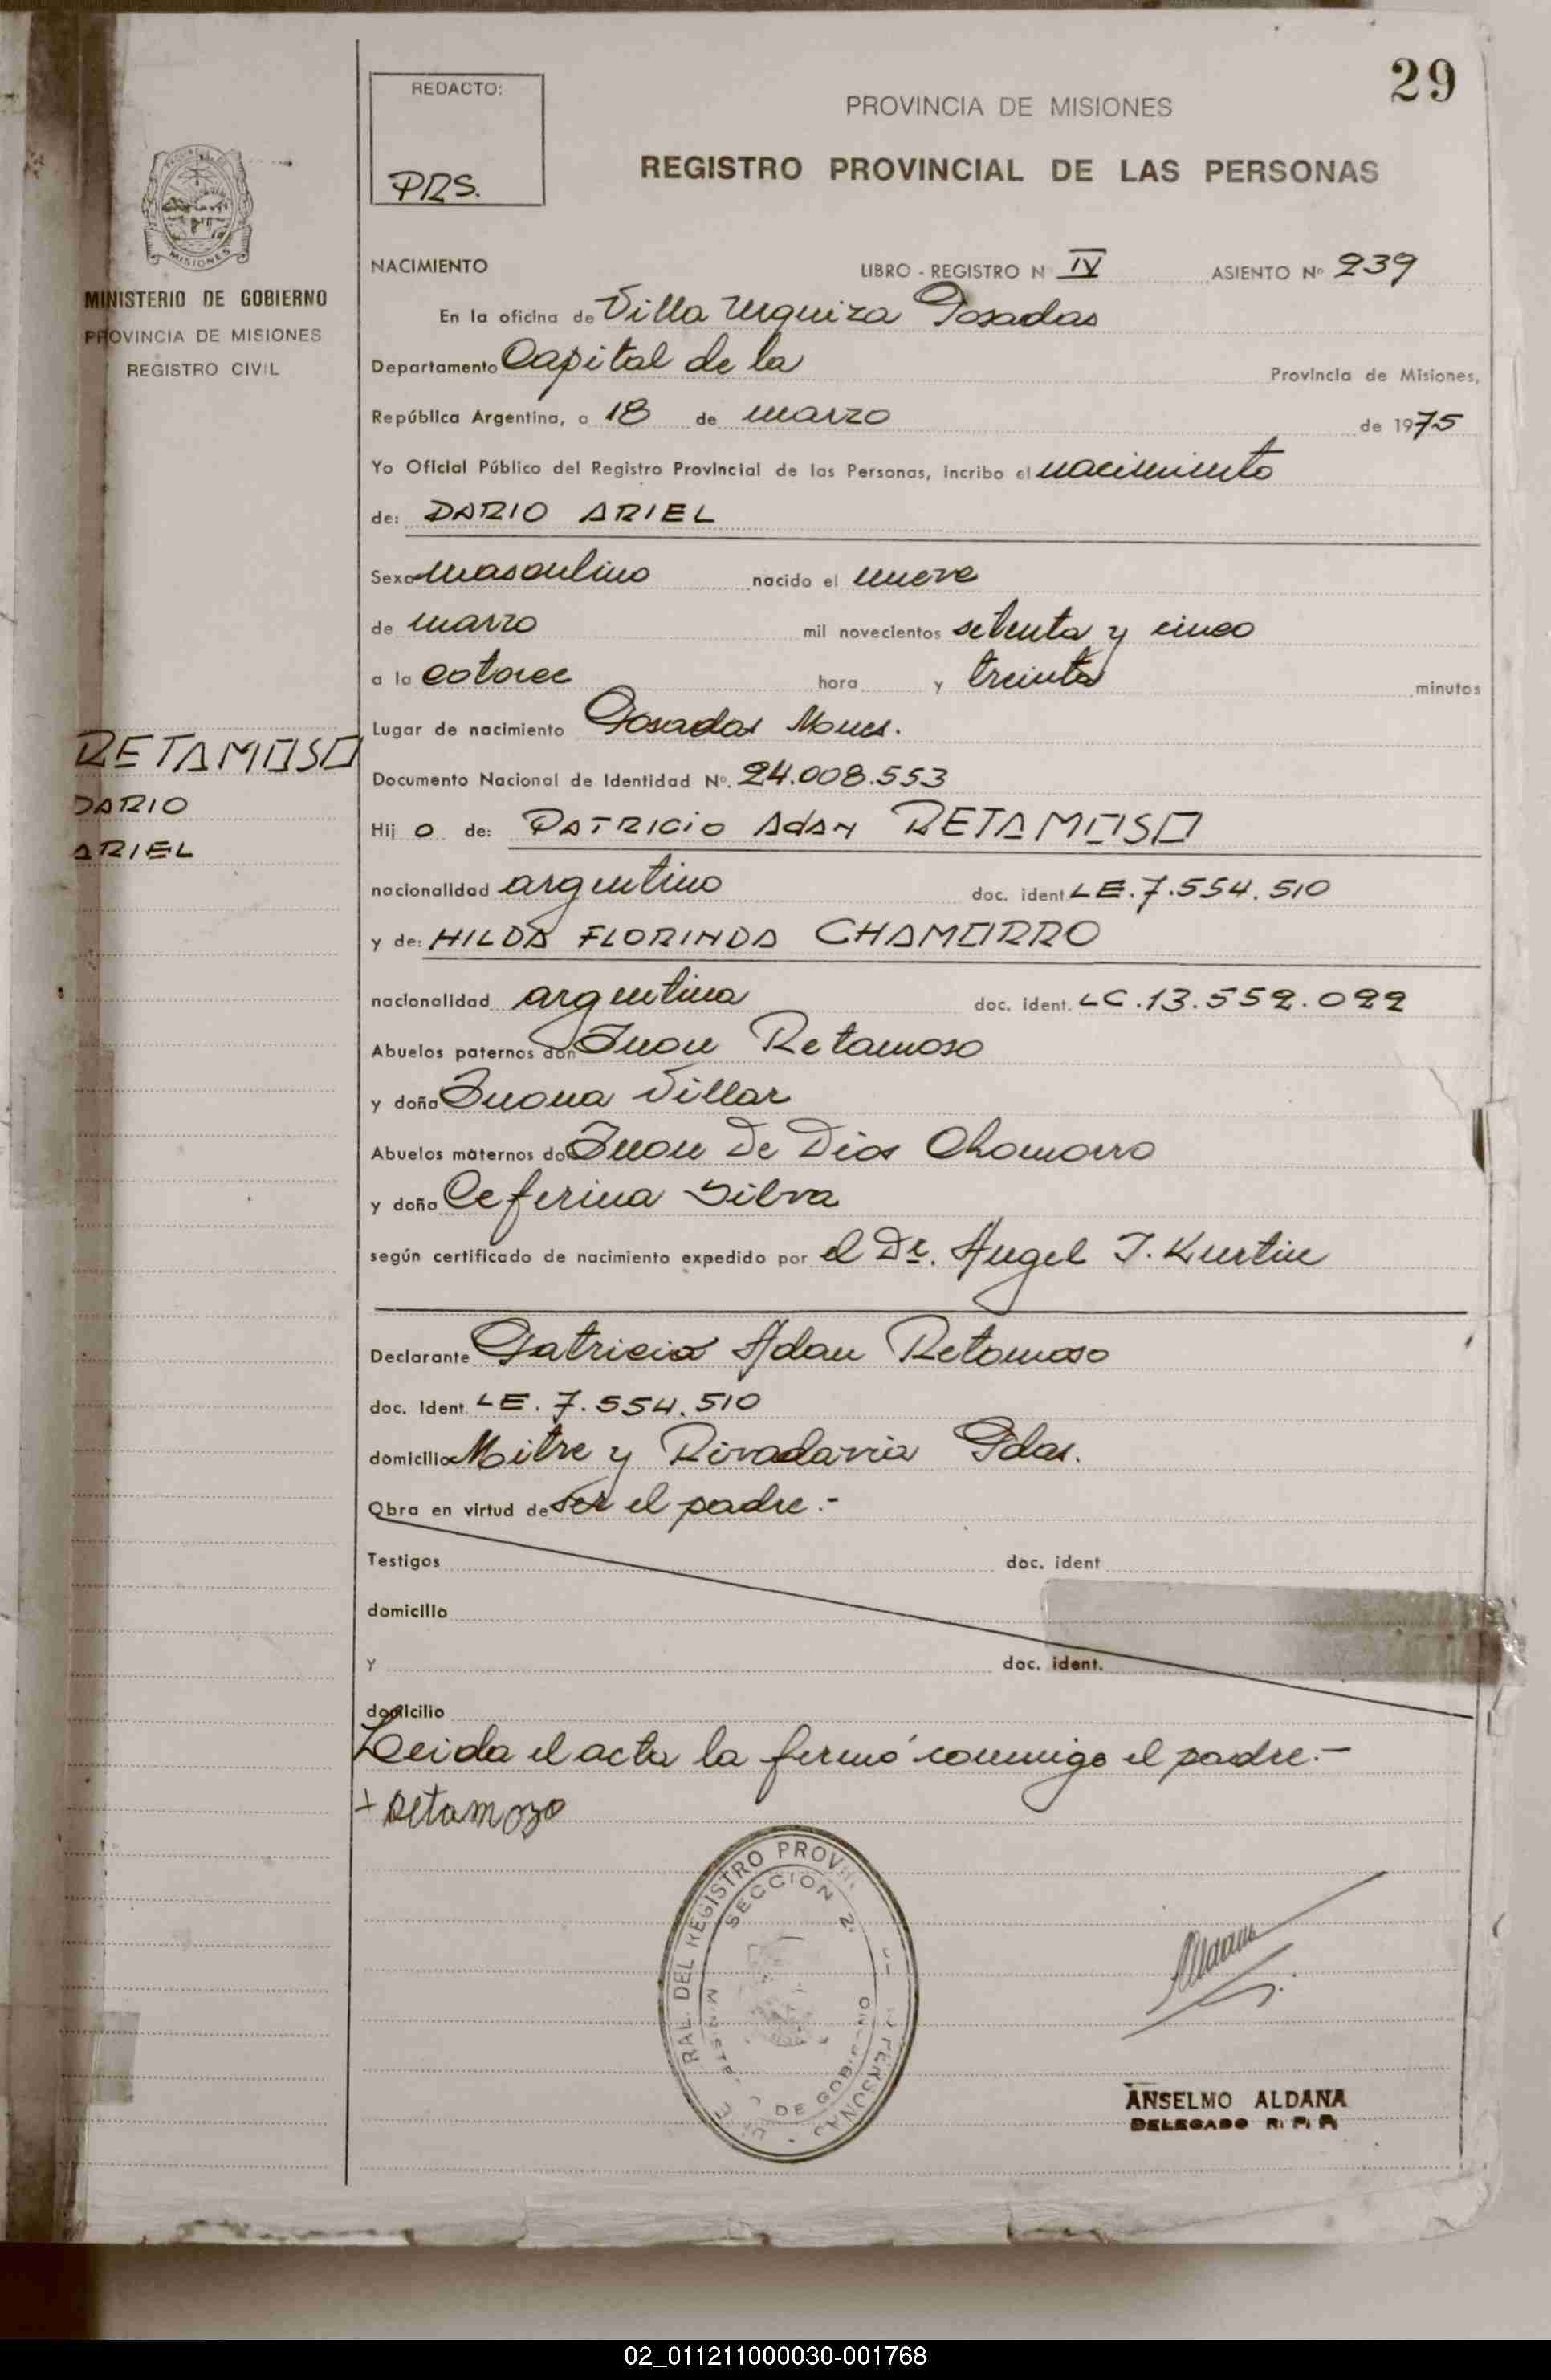 29
REDACTO:
PRS.
PROVINCIA DE MISIONES
REGISTRO PROVINCIAL DE LAS PERSONAS
MISIONES
MINISTERIO DE GOBIERNO
PROVINCIA DE MISIONES
REGISTRO CIVIL
NACIMIENTO LIBRO - REGISTRO N IV ASIENTO Nº 239
En la oficina de Villa Urquiza Posadas
Departamento Capital de la Provincia de Misiones,
República Argentina, a 18 de marzo de 1975
Yo Oficial Público del Registro Provincial de las Personas, incribo el nacimiento
de: DARIO ARIEL
Sexo masculino nacido el nueve
de marzo mil novecientos setenta y cinco
a la catorce hora y treinta minutos
Lugar de nacimiento Posadas Mnes.
RETAMOSO
DARIO
ARIEL
Documento Nacional de Identidad Nº. 24.008.553
Hij o de: PATRICIO ADAN RETAMOSO
nacionalidad argentino doc. ident LE. 7.554.510
y de: HILDA FLORINDA CHAMORRO
nacionalidad argentina doc. ident. LC.13.552.022
Abuelos paternos don Juan Retamoso
y doña Juana Villar
Abuelos maternos do Juan De Dios Chamorro
y doña Ceferina Silva
según certificado de nacimiento expedido por el Dr. Angel J. Kurtin
Declarante Patricio Adan Retamoso
doc. Ident. LE. 7.554.510
domicilio Mitre y Rivadavia Pdas.
Obra en virtud de ser el padre.-
Testigos doc. ident
domicilio
Y doc. ident.
domicilio
Leida el acta la firmó conmigo el padre.-
+ Retamozo
RAL DEL REGISTRO PROV
SECCION 2
DE GOBIERNO
PERSONAS
Aldana
ANSELMO ALDANA
DELEGADO R. P. P.
02_011211000030-001768